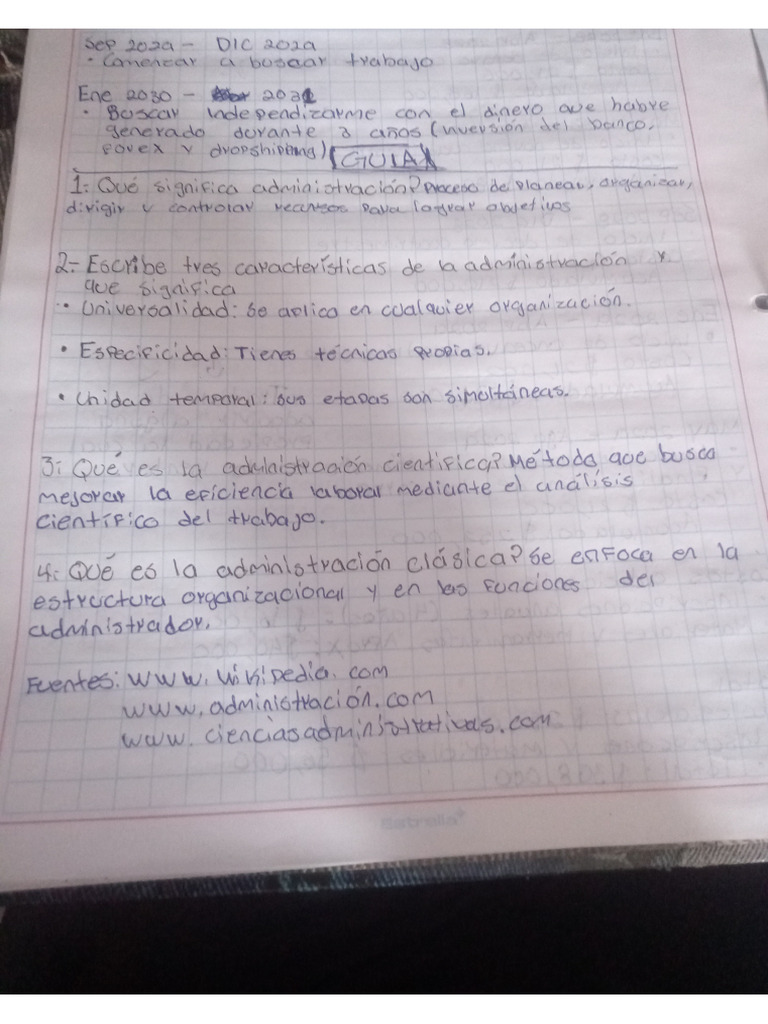 Sep 2029 - DIC 2029
• Comenzar a buscar trabajo
Ene 2030 - 2031
• Buscar independizarme con el dinero que habre
generado durante 3 años (inversión del banco,
forex y dropshipping) GUIA
1: Qué significa administración? Proceso de planear, organizar,
dirigir y controlar recursos para lograr objetivos
2.- Escribe tres características de la administración y
que significa
• Universalidad: Se aplica en cualquier organización.
• Especificidad: Tienes técnicas propias.
• Unidad temporal: sus etapas son simultáneas.
3: Qué es la administración científica? Método que busca
mejorar la eficiencia laboral mediante el análisis
científico del trabajo.
4: Qué es la administración clásica? Se enfoca en la
estructura organizacional y en las funciones del
administrador.
Fuentes: www.wikipedia.com
www.administración.com
www.cienciasadministrativas.com
Estrella